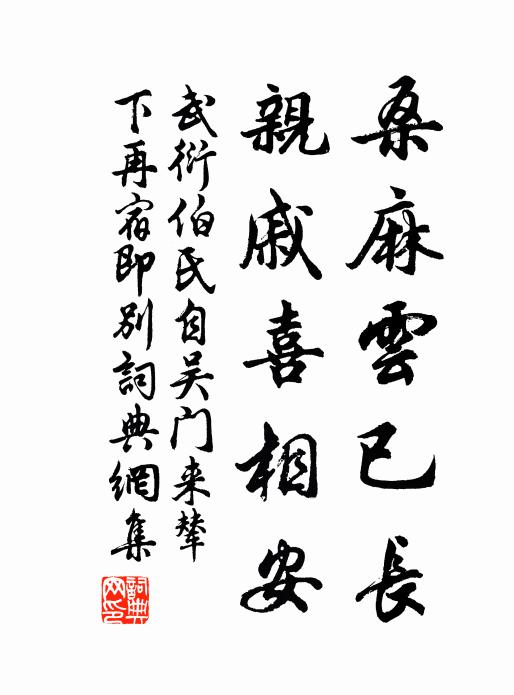 桑麻雲已長
親戚喜相安
武衍伯氏自吴门来輦
下再宿即别詞典網集
詞典
网印